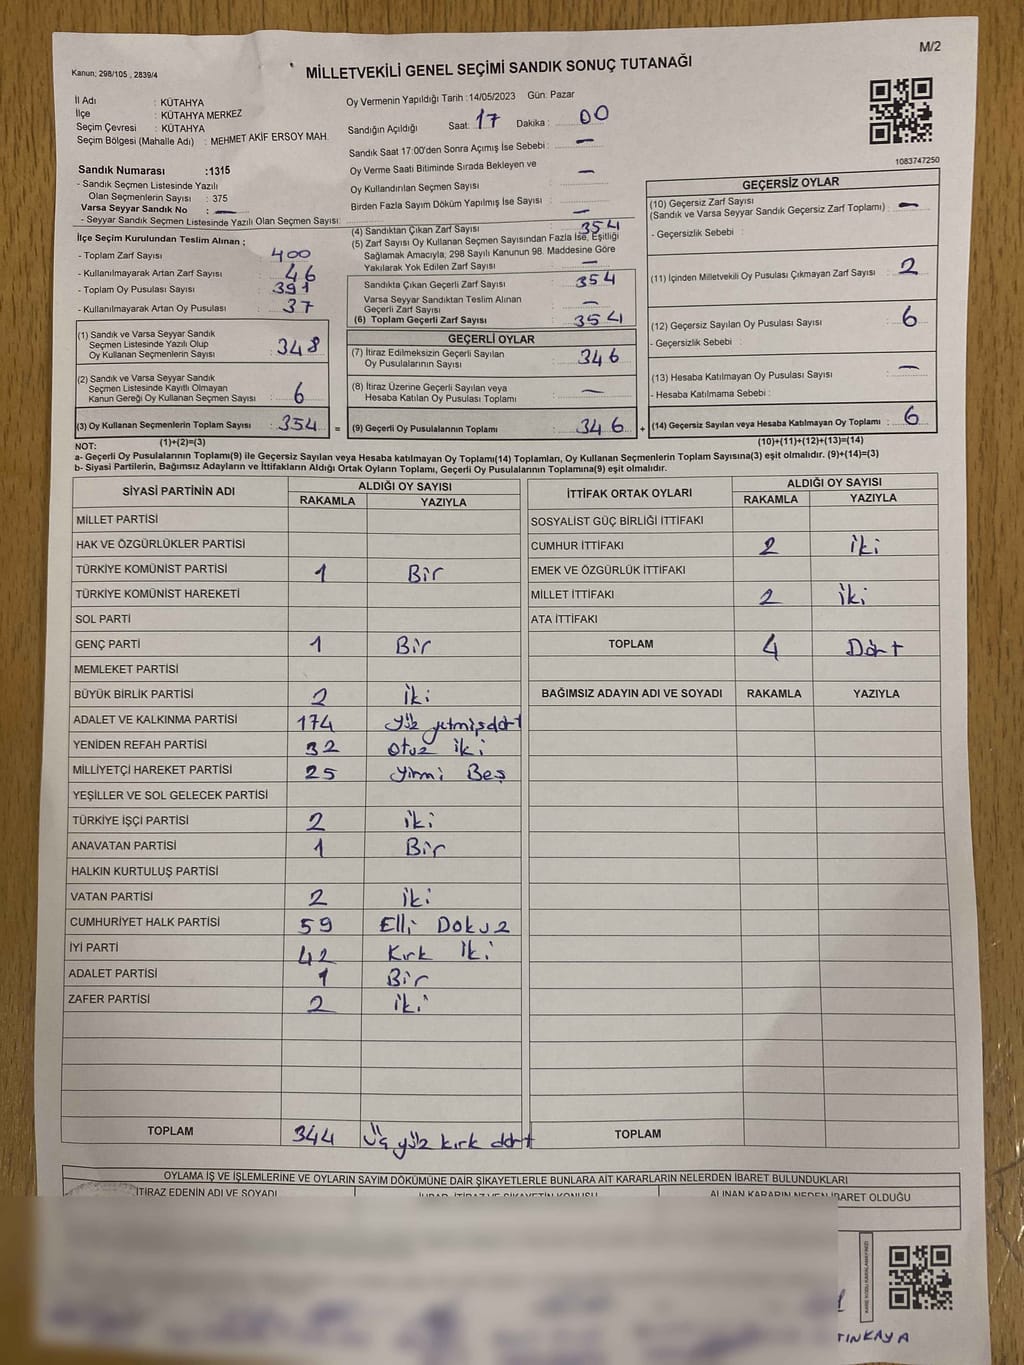 M/2
Kanun; 298/105 , 2839/4
MİLLETVEKİLİ GENEL SEÇİMİ SANDIK SONUÇ TUTANAĞI
İl Adı : KÜTAHYA
İlçe : KÜTAHYA MERKEZ
Seçim Çevresi : KÜTAHYA
Seçim Bölgesi (Mahalle Adı) : MEHMET AKİF ERSOY MAH.
Sandık Numarası :1315
- Sandık Seçmen Listesinde Yazılı
Olan Seçmenlerin Sayısı : 375
Varsa Seyyar Sandık No : —
- Seyyar Sandık Seçmen Listesinde Yazılı Olan Seçmen Sayısı:
İlçe Seçim Kurulundan Teslim Alınan ;
- Toplam Zarf Sayısı : 400
- Kullanılmayarak Artan Zarf Sayısı : 46
- Toplam Oy Pusulası Sayısı : 391
- Kullanılmayarak Artan Oy Pusulası : 37
(1) Sandık ve Varsa Seyyar Sandık
Seçmen Listesinde Yazılı Olup
Oy Kullanan Seçmenlerin Sayısı : 348
(2) Sandık ve Varsa Seyyar Sandık
Seçmen Listesinde Kayıtlı Olmayan
Kanun Gereği Oy Kullanan Seçmen Sayısı : 6
(3) Oy Kullanan Seçmenlerin Toplam Sayısı : 354 =
Oy Vermenin Yapıldığı Tarih :14/05/2023 Gün: Pazar
Sandığın Açıldığı Saat: 17 Dakika : 00
Sandık Saat 17:00'den Sonra Açımış İse Sebebi : —
Oy Verme Saati Bitiminde Sırada Bekleyen ve
Oy Kullandırılan Seçmen Sayısı —
Birden Fazla Sayım Döküm Yapılmış İse Sayısı : —
(4) Sandıktan Çıkan Zarf Sayısı : 354
(5) Zarf Sayısı Oy Kullanan Seçmen Sayısından Fazla İse, Eşitliği
Sağlamak Amacıyla, 298 Sayılı Kanunun 98. Maddesine Göre
Yakılarak Yok Edilen Zarf Sayısı : —
Sandıkta Çıkan Geçerli Zarf Sayısı : 354
Varsa Seyyar Sandıktan Teslim Alınan
Geçerli Zarf Sayısı : —
(6) Toplam Geçerli Zarf Sayısı : 354
GEÇERLİ OYLAR
(7) İtiraz Edilmeksizin Geçerli Sayılan
Oy Pusulalarının Sayısı : 346
(8) İtiraz Üzerine Geçerli Sayılan veya
Hesaba Katılan Oy Pusulası Toplamı : —
(9) Geçerli Oy Pusulalarının Toplamı : 346 +
1083747250
GEÇERSİZ OYLAR
(10) Geçersiz Zarf Sayısı
(Sandık ve Varsa Seyyar Sandık Geçersiz Zarf Toplamı) : —
- Geçersizlik Sebebi :
(11) İçinden Milletvekili Oy Pusulası Çıkmayan Zarf Sayısı : 2
(12) Geçersiz Sayılan Oy Pusulası Sayısı : 6
- Geçersizlik Sebebi :
(13) Hesaba Katılmayan Oy Pusulası Sayısı : —
- Hesaba Katılmama Sebebi :
(14) Geçersiz Sayılan veya Hesaba Katılmayan Oy Toplamı : 6
NOT: (1)+(2)=(3) (10)+(11)+(12)+(13)=(14)
a- Geçerli Oy Pusulalarının Toplamı(9) ile Geçersiz Sayılan veya Hesaba katılmayan Oy Toplamı(14) Toplamları, Oy Kullanan Seçmenlerin Toplam Sayısına(3) eşit olmalıdır. (9)+(14)=(3)
b- Siyasi Partilerin, Bağımsız Adayların ve İttifakların Aldığı Ortak Oyların Toplamı, Geçerli Oy Pusulalarının Toplamına(9) eşit olmalıdır.
SİYASİ PARTİNİN ADI ALDIĞI OY SAYISI
RAKAMLA YAZIYLA
MİLLET PARTİSİ
HAK VE ÖZGÜRLÜKLER PARTİSİ
TÜRKİYE KOMÜNİST PARTİSİ 1 Bir
TÜRKİYE KOMÜNİST HAREKETİ
SOL PARTİ
GENÇ PARTİ 1 Bir
MEMLEKET PARTİSİ
BÜYÜK BİRLİK PARTİSİ 2 İki
ADALET VE KALKINMA PARTİSİ 174 yüz yetmişdört
YENİDEN REFAH PARTİSİ 32 otuz iki
MİLLİYETÇİ HAREKET PARTİSİ 25 yirmi Beş
YEŞİLLER VE SOL GELECEK PARTİSİ
TÜRKİYE İŞÇİ PARTİSİ 2 İki
ANAVATAN PARTİSİ 1 Bir
HALKIN KURTULUŞ PARTİSİ
VATAN PARTİSİ 2 İki
CUMHURİYET HALK PARTİSİ 59 Elli Dokuz
İYİ PARTİ 42 Kırk İki
ADALET PARTİSİ 1 Bir
ZAFER PARTİSİ 2 İki
TOPLAM 344 Üç yüz kırk dört
İTTİFAK ORTAK OYLARI ALDIĞI OY SAYISI
RAKAMLA YAZIYLA
SOSYALİST GÜÇ BİRLİĞİ İTTİFAKI
CUMHUR İTTİFAKI 2 İki
EMEK VE ÖZGÜRLÜK İTTİFAKI
MİLLET İTTİFAKI 2 İki
ATA İTTİFAKI
TOPLAM 4 Dört
BAĞIMSIZ ADAYIN ADI VE SOYADI RAKAMLA YAZIYLA
TOPLAM
OYLAMA İŞ VE İŞLEMLERİNE VE OYLARIN SAYIM DÖKÜMÜNE DAİR ŞİKAYETLERLE BUNLARA AİT KARARLARIN NELERDEN İBARET BULUNDUKLARI
İTİRAZ EDENİN ADI VE SOYADI ALINAN KARARIN NEDEN İBARET OLDUĞU
TINKAYA